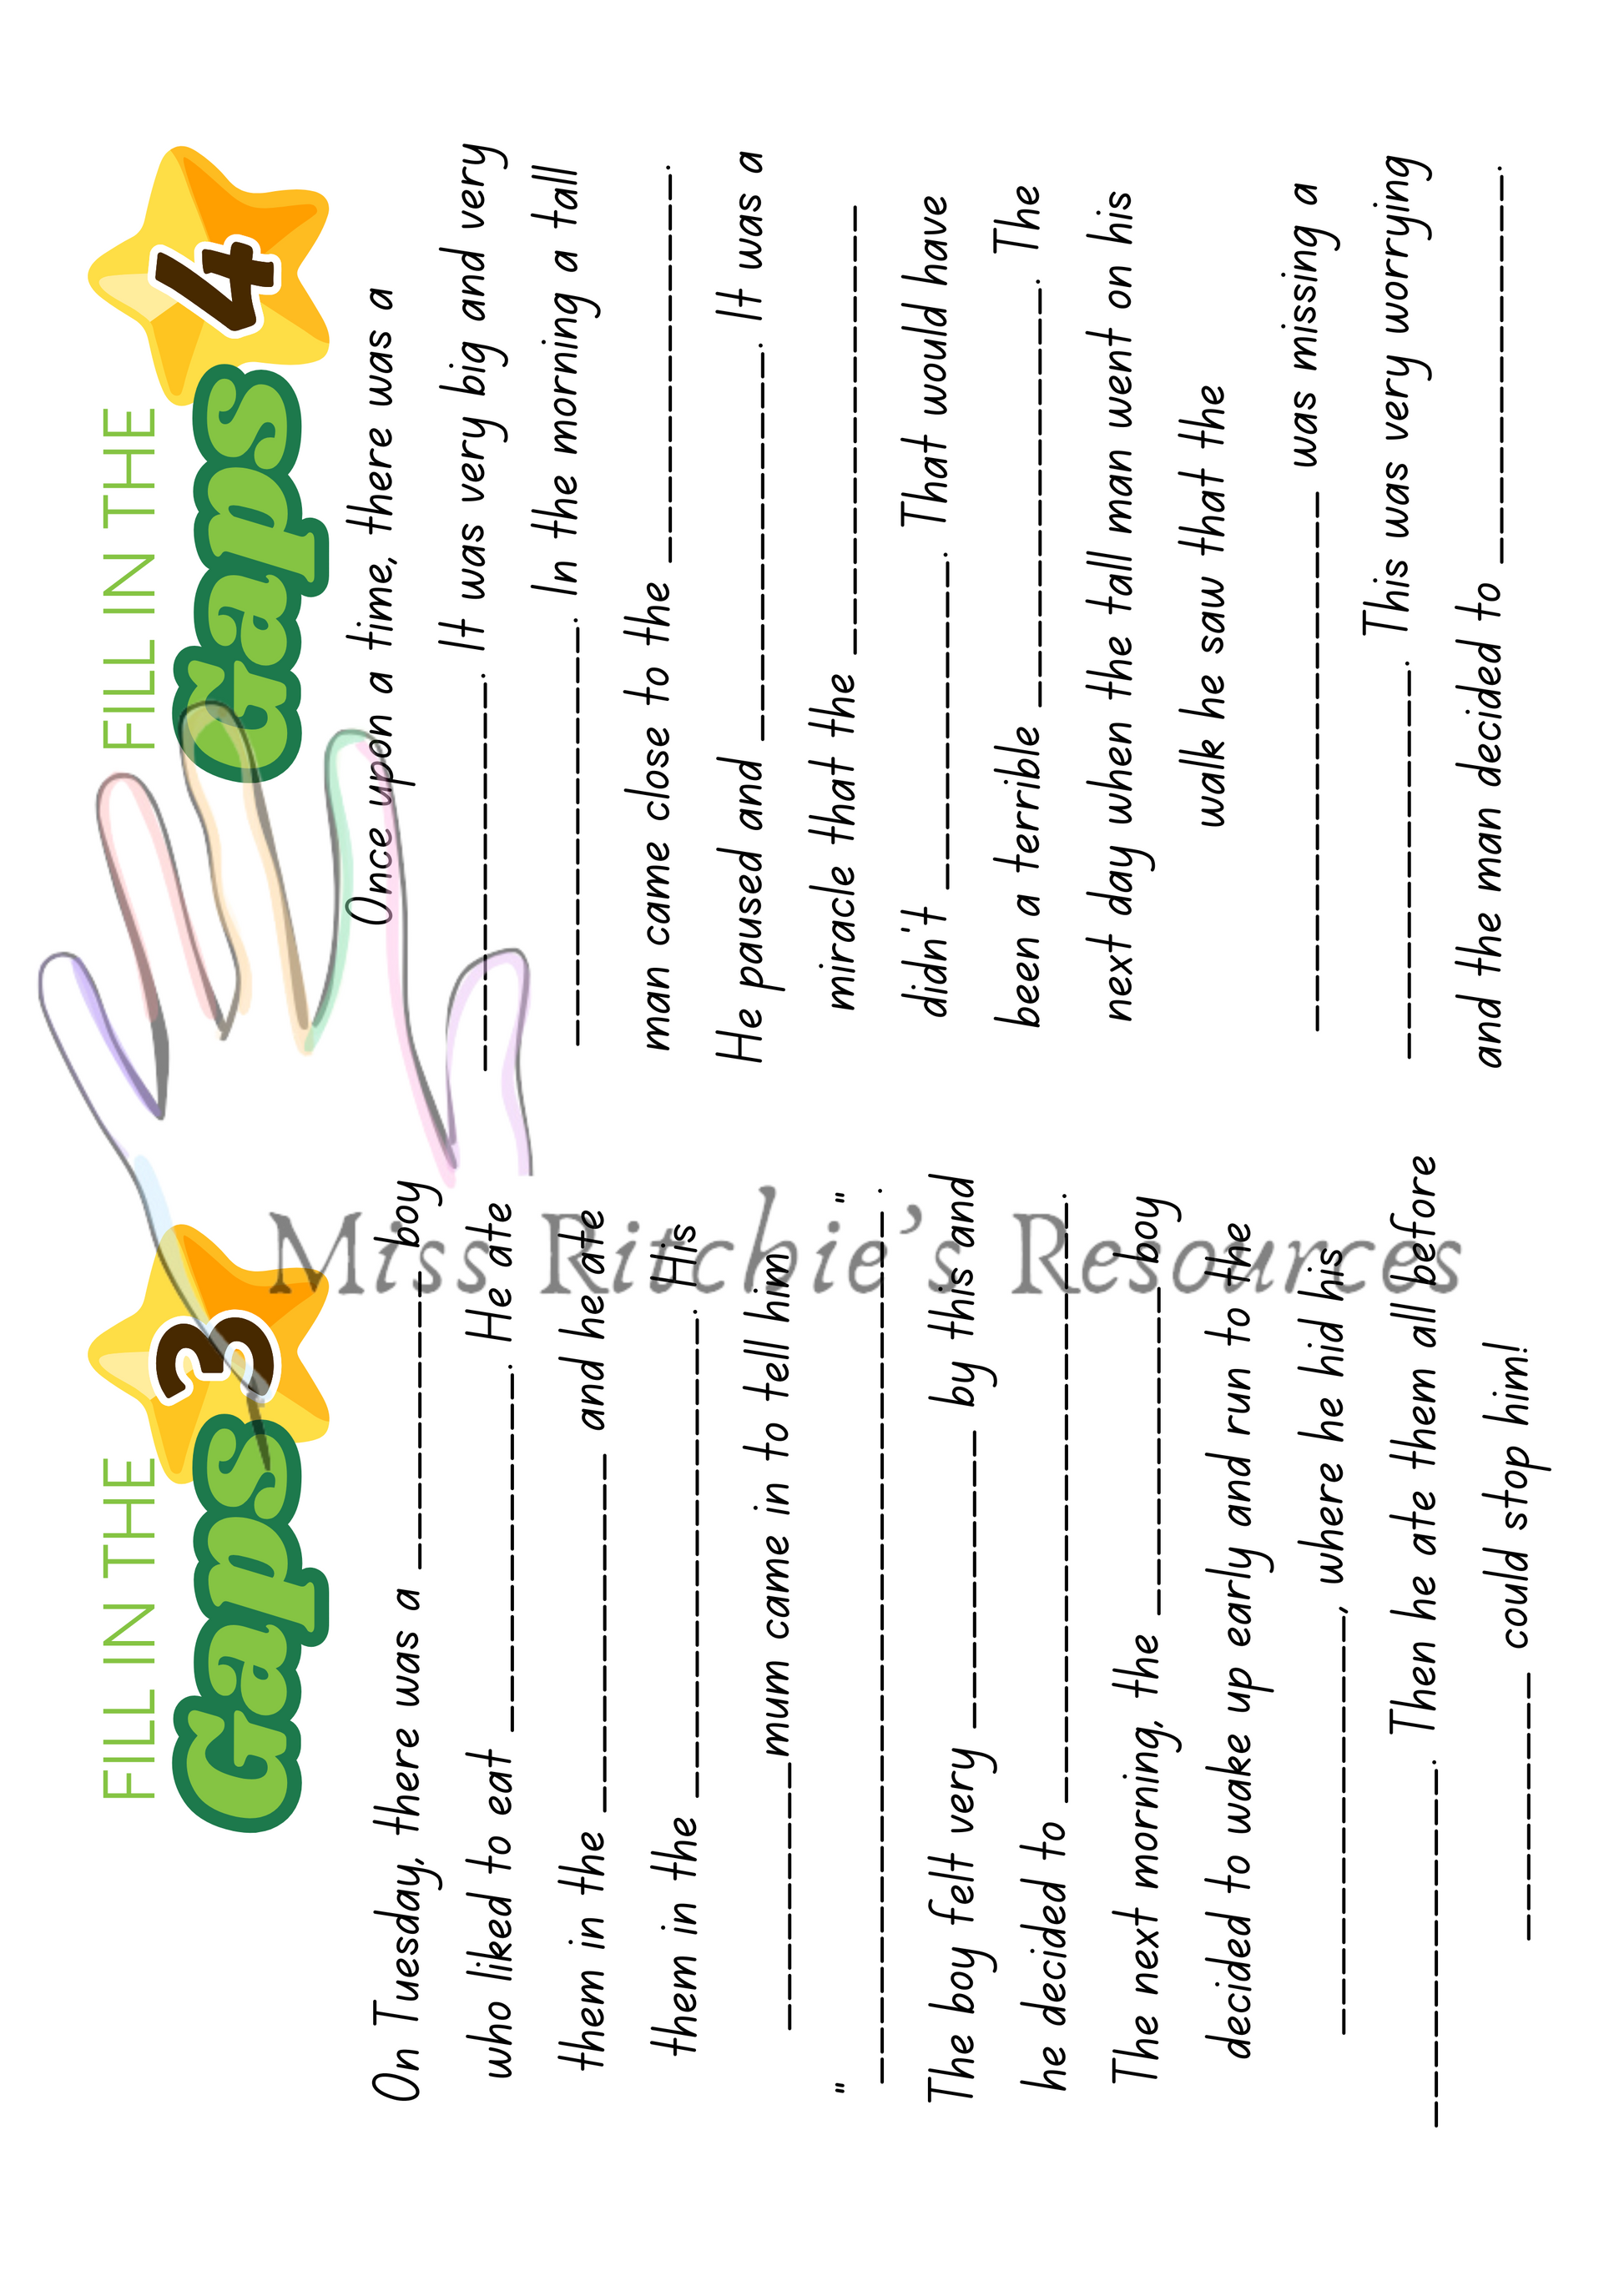 FILL IN THE
Gaps
3
On Tuesday, there was a ____________ boy
who liked to eat ______________. He ate
them in the ______________ and he ate
them in the ___________________. His
___________ mum came in to tell him
"                    "
___________________________________.
The boy felt very ____________ by this and
he decided to ________________________.
The next morning, the _____________ boy
decided to wake up early and run to the
_________________, where he hid his
______________. Then he ate them all before
___________ could stop him!
FILL IN THE
Gaps
4
Once upon a time, there was a
________________. It was very big and very
_________________. In the morning a tall
man came close to the ________________.
He paused and ________________. It was a
miracle that the __________________
didn't _____________. That would have
been a terrible _________________. The
next day when the tall man went on his
walk he saw that the
______________________ was missing a
________________. This was very worrying
and the man decided to ________________.
Miss Ritchie's Resources